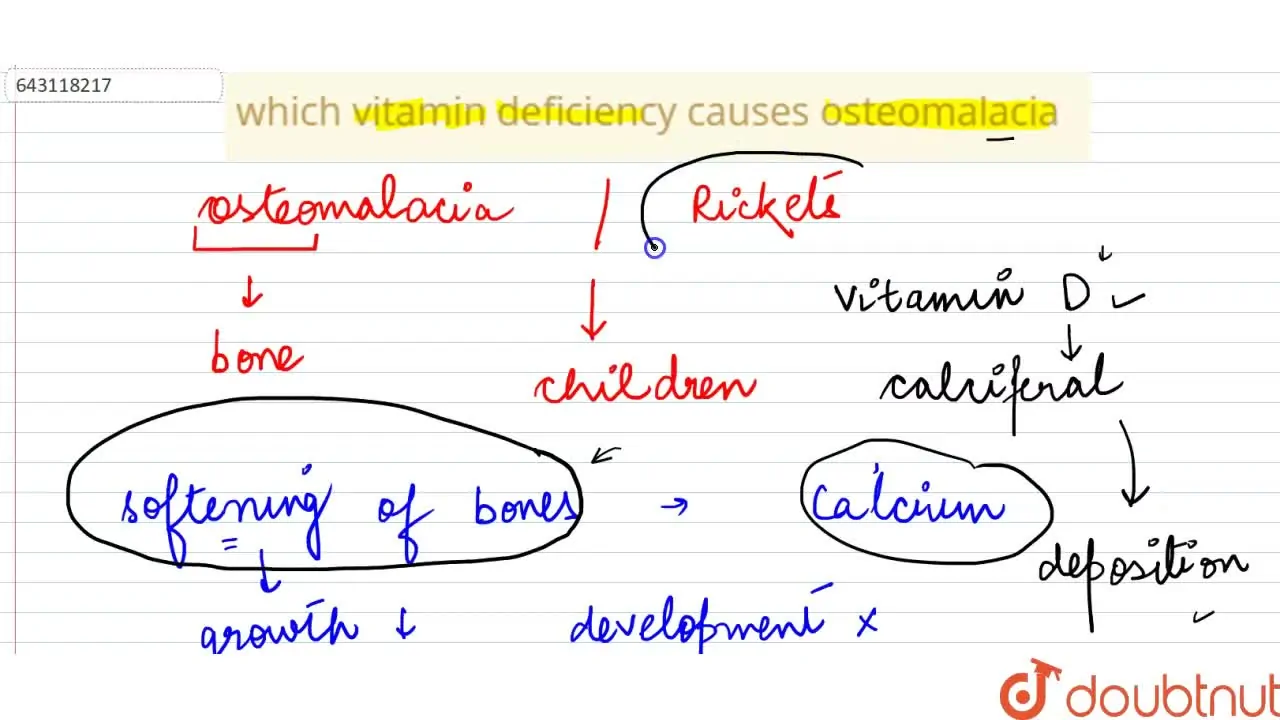 643118217
which vitamin deficiency causes osteomalacia
osteomalacia / Rickets
vitamin D ↓ ✓
↓ ↓ ↓
bone
children
calciferal
softening of bones → calcium
deposition ✓
growth ↓ development ×
doubtnut